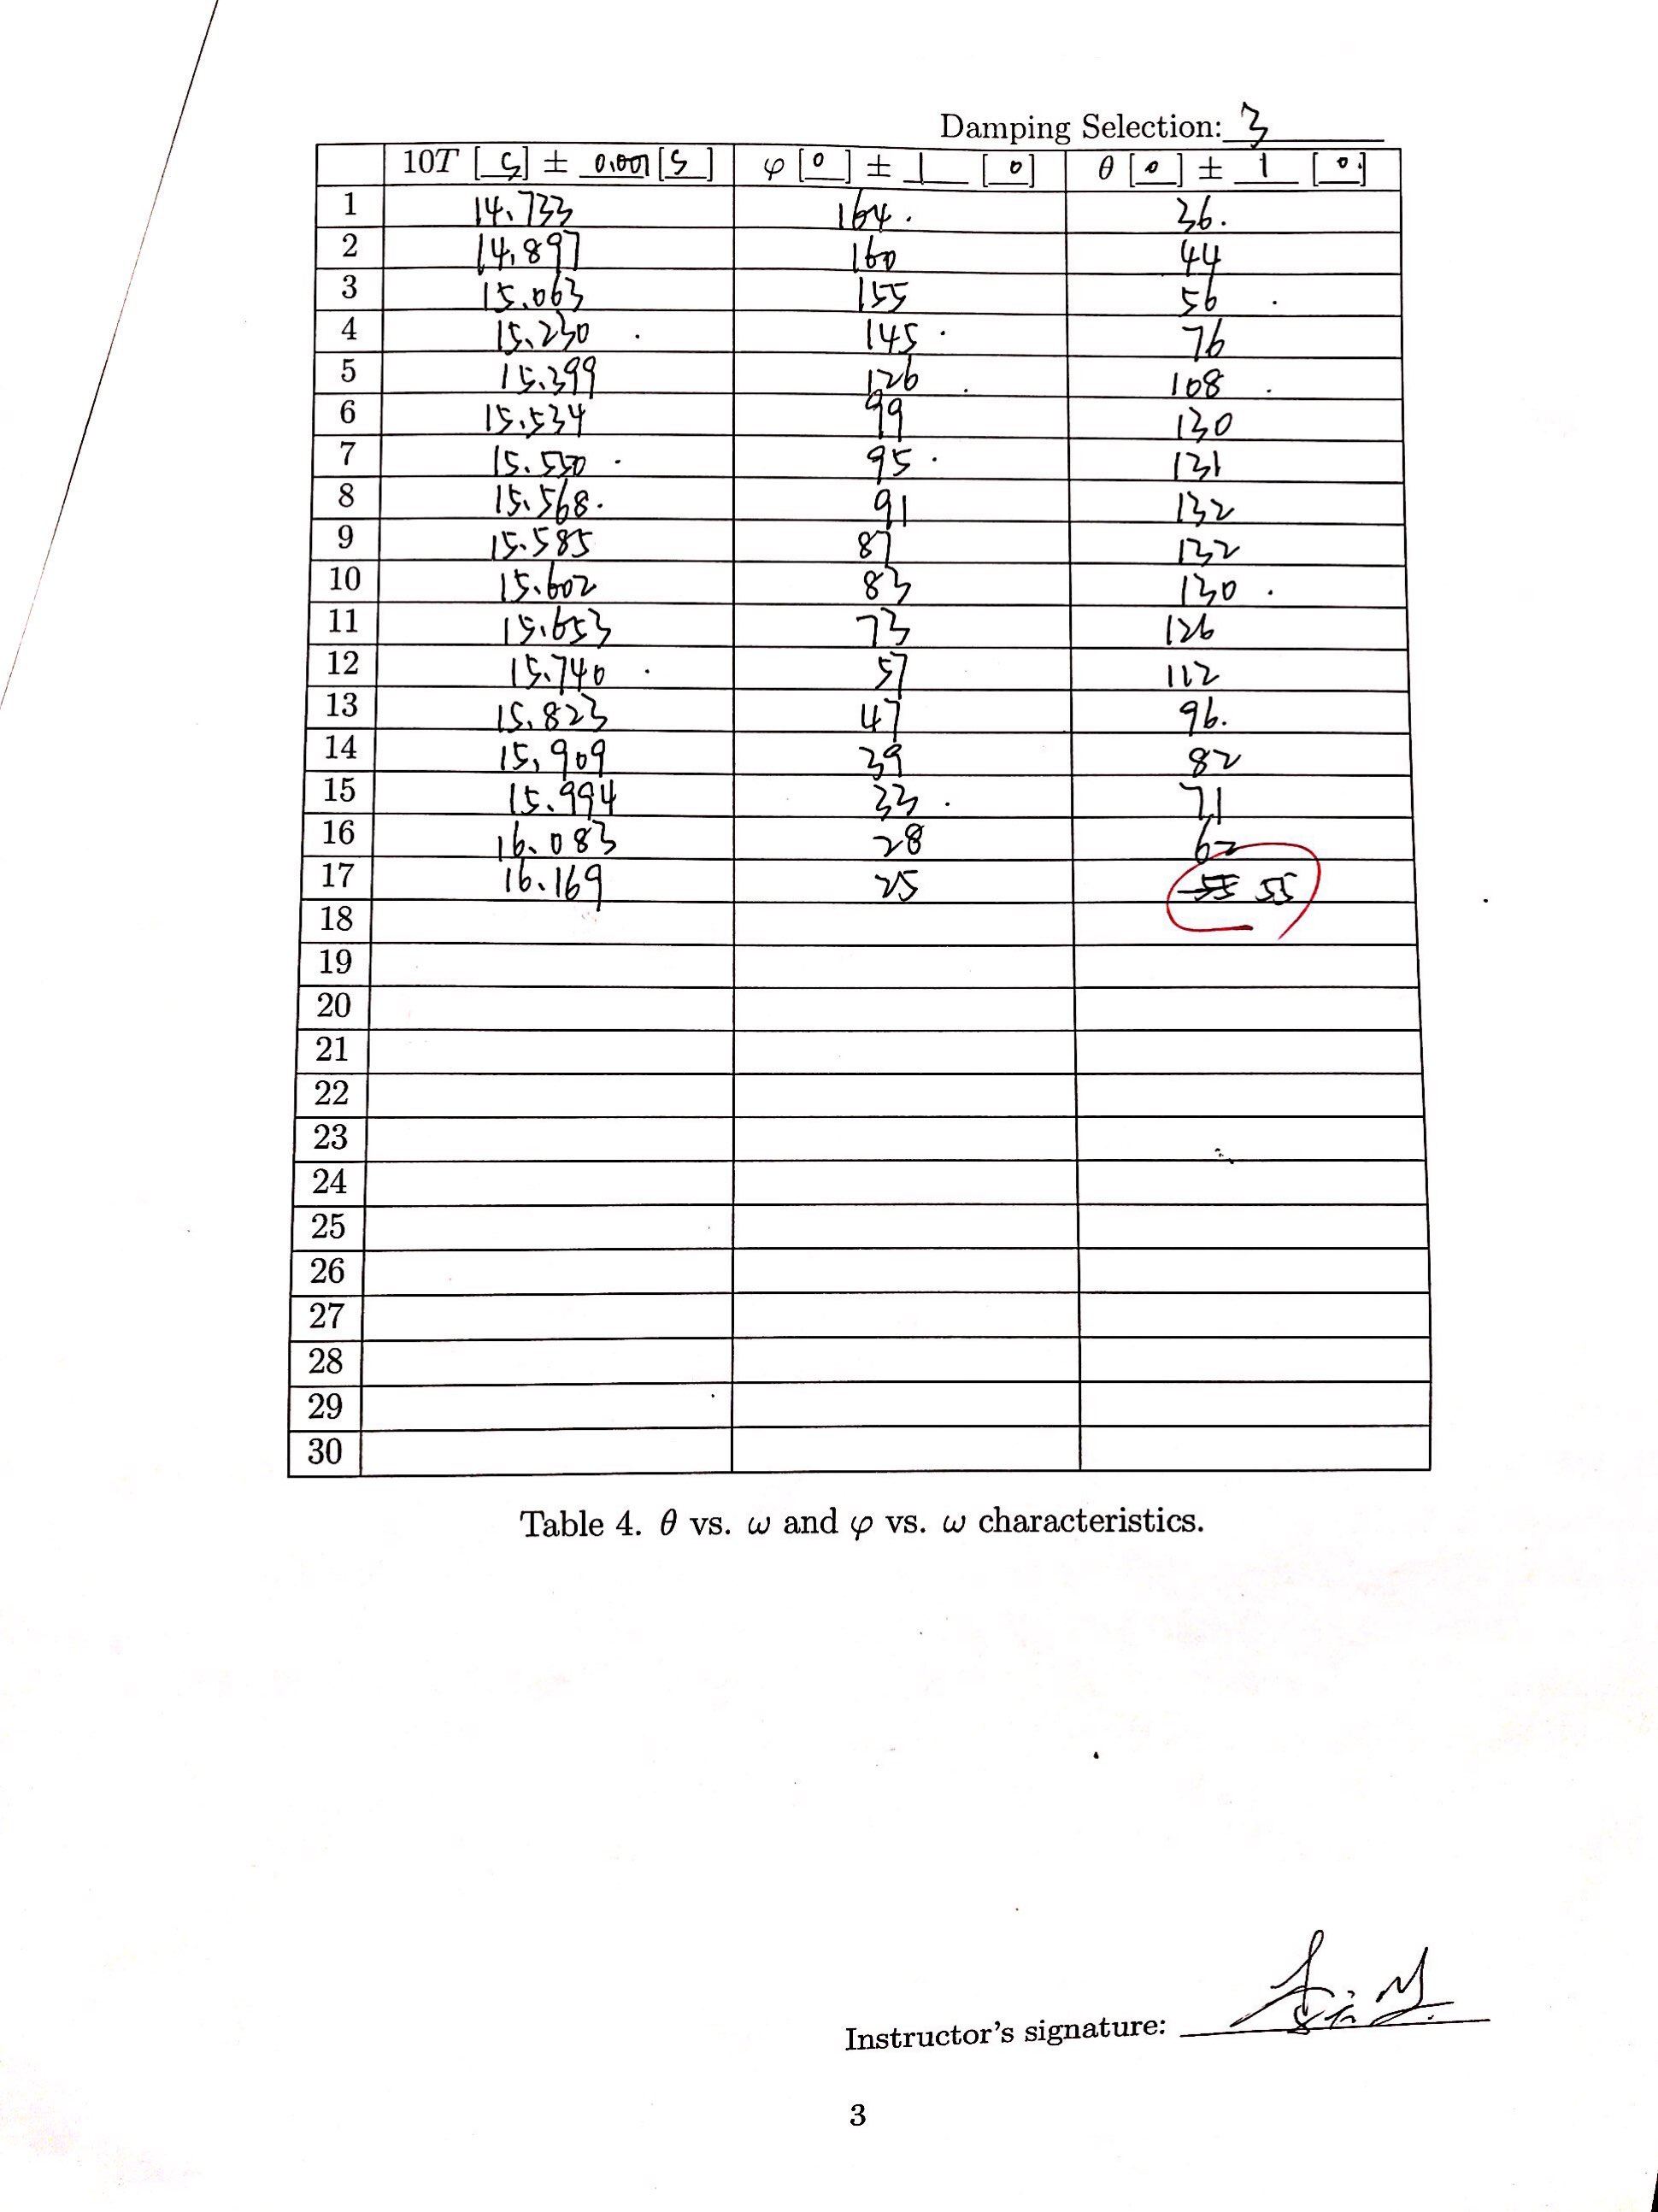 Damping Selection: 3
10T [s] ± 0.001 [s] φ [°] ± 1 [°] θ [°] ± 1 [°]
1 14.733 164 36
2 14.897 160 44
3 15.063 155 56
4 15.230 145 76
5 15.399 126 108
6 15.534 99 130
7 15.550 95 131
8 15.568 91 132
9 15.585 87 132
10 15.602 83 130
11 15.653 73 126
12 15.740 57 112
13 15.823 47 96
14 15.909 39 82
15 15.994 33 71
16 16.083 28 62
17 16.169 25 55
18
19
20
21
22
23
24
25
26
27
28
29
30
Table 4. θ vs. ω and φ vs. ω characteristics.
Instructor's signature:
3